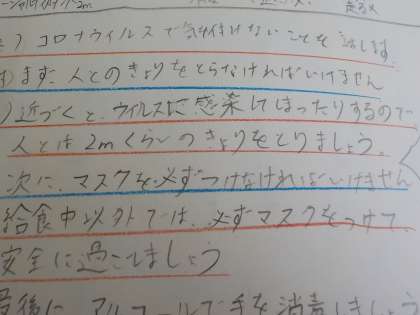 2m
)コロナウイルスで気を付けないことを話します。
まず、人とのきょりをとらなければいけません
)近づくと、ウイルスに感染してしまったりするので
人とは2mくらいのきょりをとりましょう。
次に、マスクを必ずつけなければいけません
給食中以外では、必ずマスクをつけて、
安全に過ごしましょう
最後に、アルコールで手を消毒しましょう